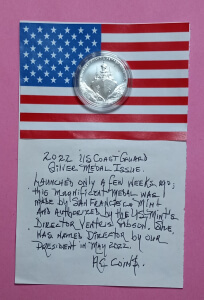 2022 US COAST GUARD
SILVER MEDAL ISSUE.
LAUNCHED ONLY A FEW WEEKS AGO;
THIS MAGNIFICENT MEDAL WAS
MADE BY SAN FRANCISCO MINT
AND AUTHORIZED BY THE US MINT'S
DIRECTOR VENTRIS GIBSON. SHE
WAS NAMED DIRECTOR BY OUR
PRESIDENT IN MAY 2022.
RC COINS.